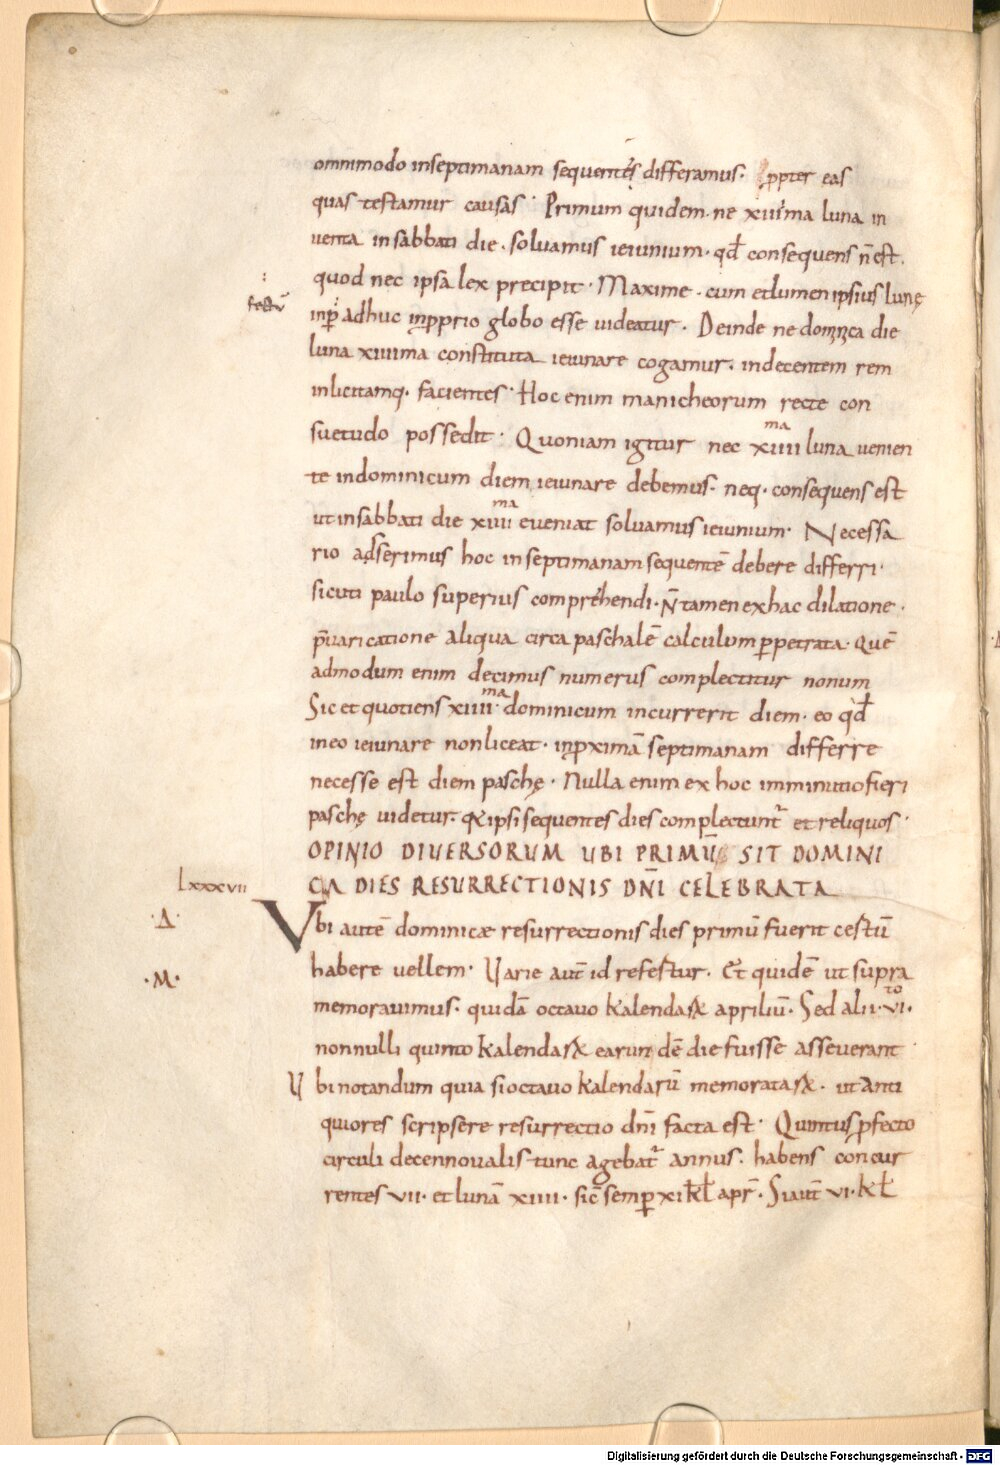 omnimodo inseptimanam sequentes differamus. ꝓpter eas
quas testamur causas. Primum quidem. ne xiiiima luna in
uenta insabbati die. soluamus ieiunium. qđ consequens n̄ est.
quod nec ipsa lex precipit. Maxime. cum et lumen ipsius lunę
festū
inp̄ adhuc inꝓprio globo esse uideatur. Deinde ne dominica die
luna xiiiima constituta ieiunare cogamur. indecentem rem
inlicitamq. facientes. Hoc enim manicheorum recte con
suetudo possedit. Quoniam igitur nec xiiii ma luna uenien
te indominicum diem ieiunare debemus. neq. consequens est
ut insabbati die xiiii ma eueniat soluamus ieiunium. Necessa
rio adserimus hoc inseptimanam sequentē debere differri.
sicuti paulo superius comprehendi. n̄ tamen exhac dilatione.
p̄uaricatione aliqua circa paschalē calculum ꝑpetrata. Quē
admodum enim decimus numerus complectitur nonum
Sic et quotiens xiiii ma. dominicum incurrerit diem. eo qđ
ineo ieiunare nonliceat. inꝓximā septimanam differre
necesse est diem paschę. Nulla enim ex hoc imminutio fieri
paschę uidetur. qꝛ ipsi sequentes dies complectunt᷑ et reliquos.
OPINIO DIVERSORUM UBI PRIMŪ SIT DOMINI
CA DIES RESURRECTIONIS DN̄I CELEBRATA
Lxxxvii
Vbi autē dominicæ resurrectionis dies primū fuerit cestū
·Δ·
habere uellem. Uarie aut̄ id refestur. Et quidē ut supra
·M·
memorauimus. quidā octauo kalendaꝝ apriliū. Sed alii. vi to.
nonnulli quinto kalendaꝝ earundē die fuisse asseuerant
Ubi notandum quia si octauo kalendarū memorataꝝ. ut anti
quiores scripsere resurrectio dn̄i facta est. Quintus ꝓfecto
circuli decennoualis tunc agebat᷑ annus. habens concur
rentes vii. et lunā xiiii. sic̄ semꝑ xi kł apr̄. Si aut̄ vi. kł